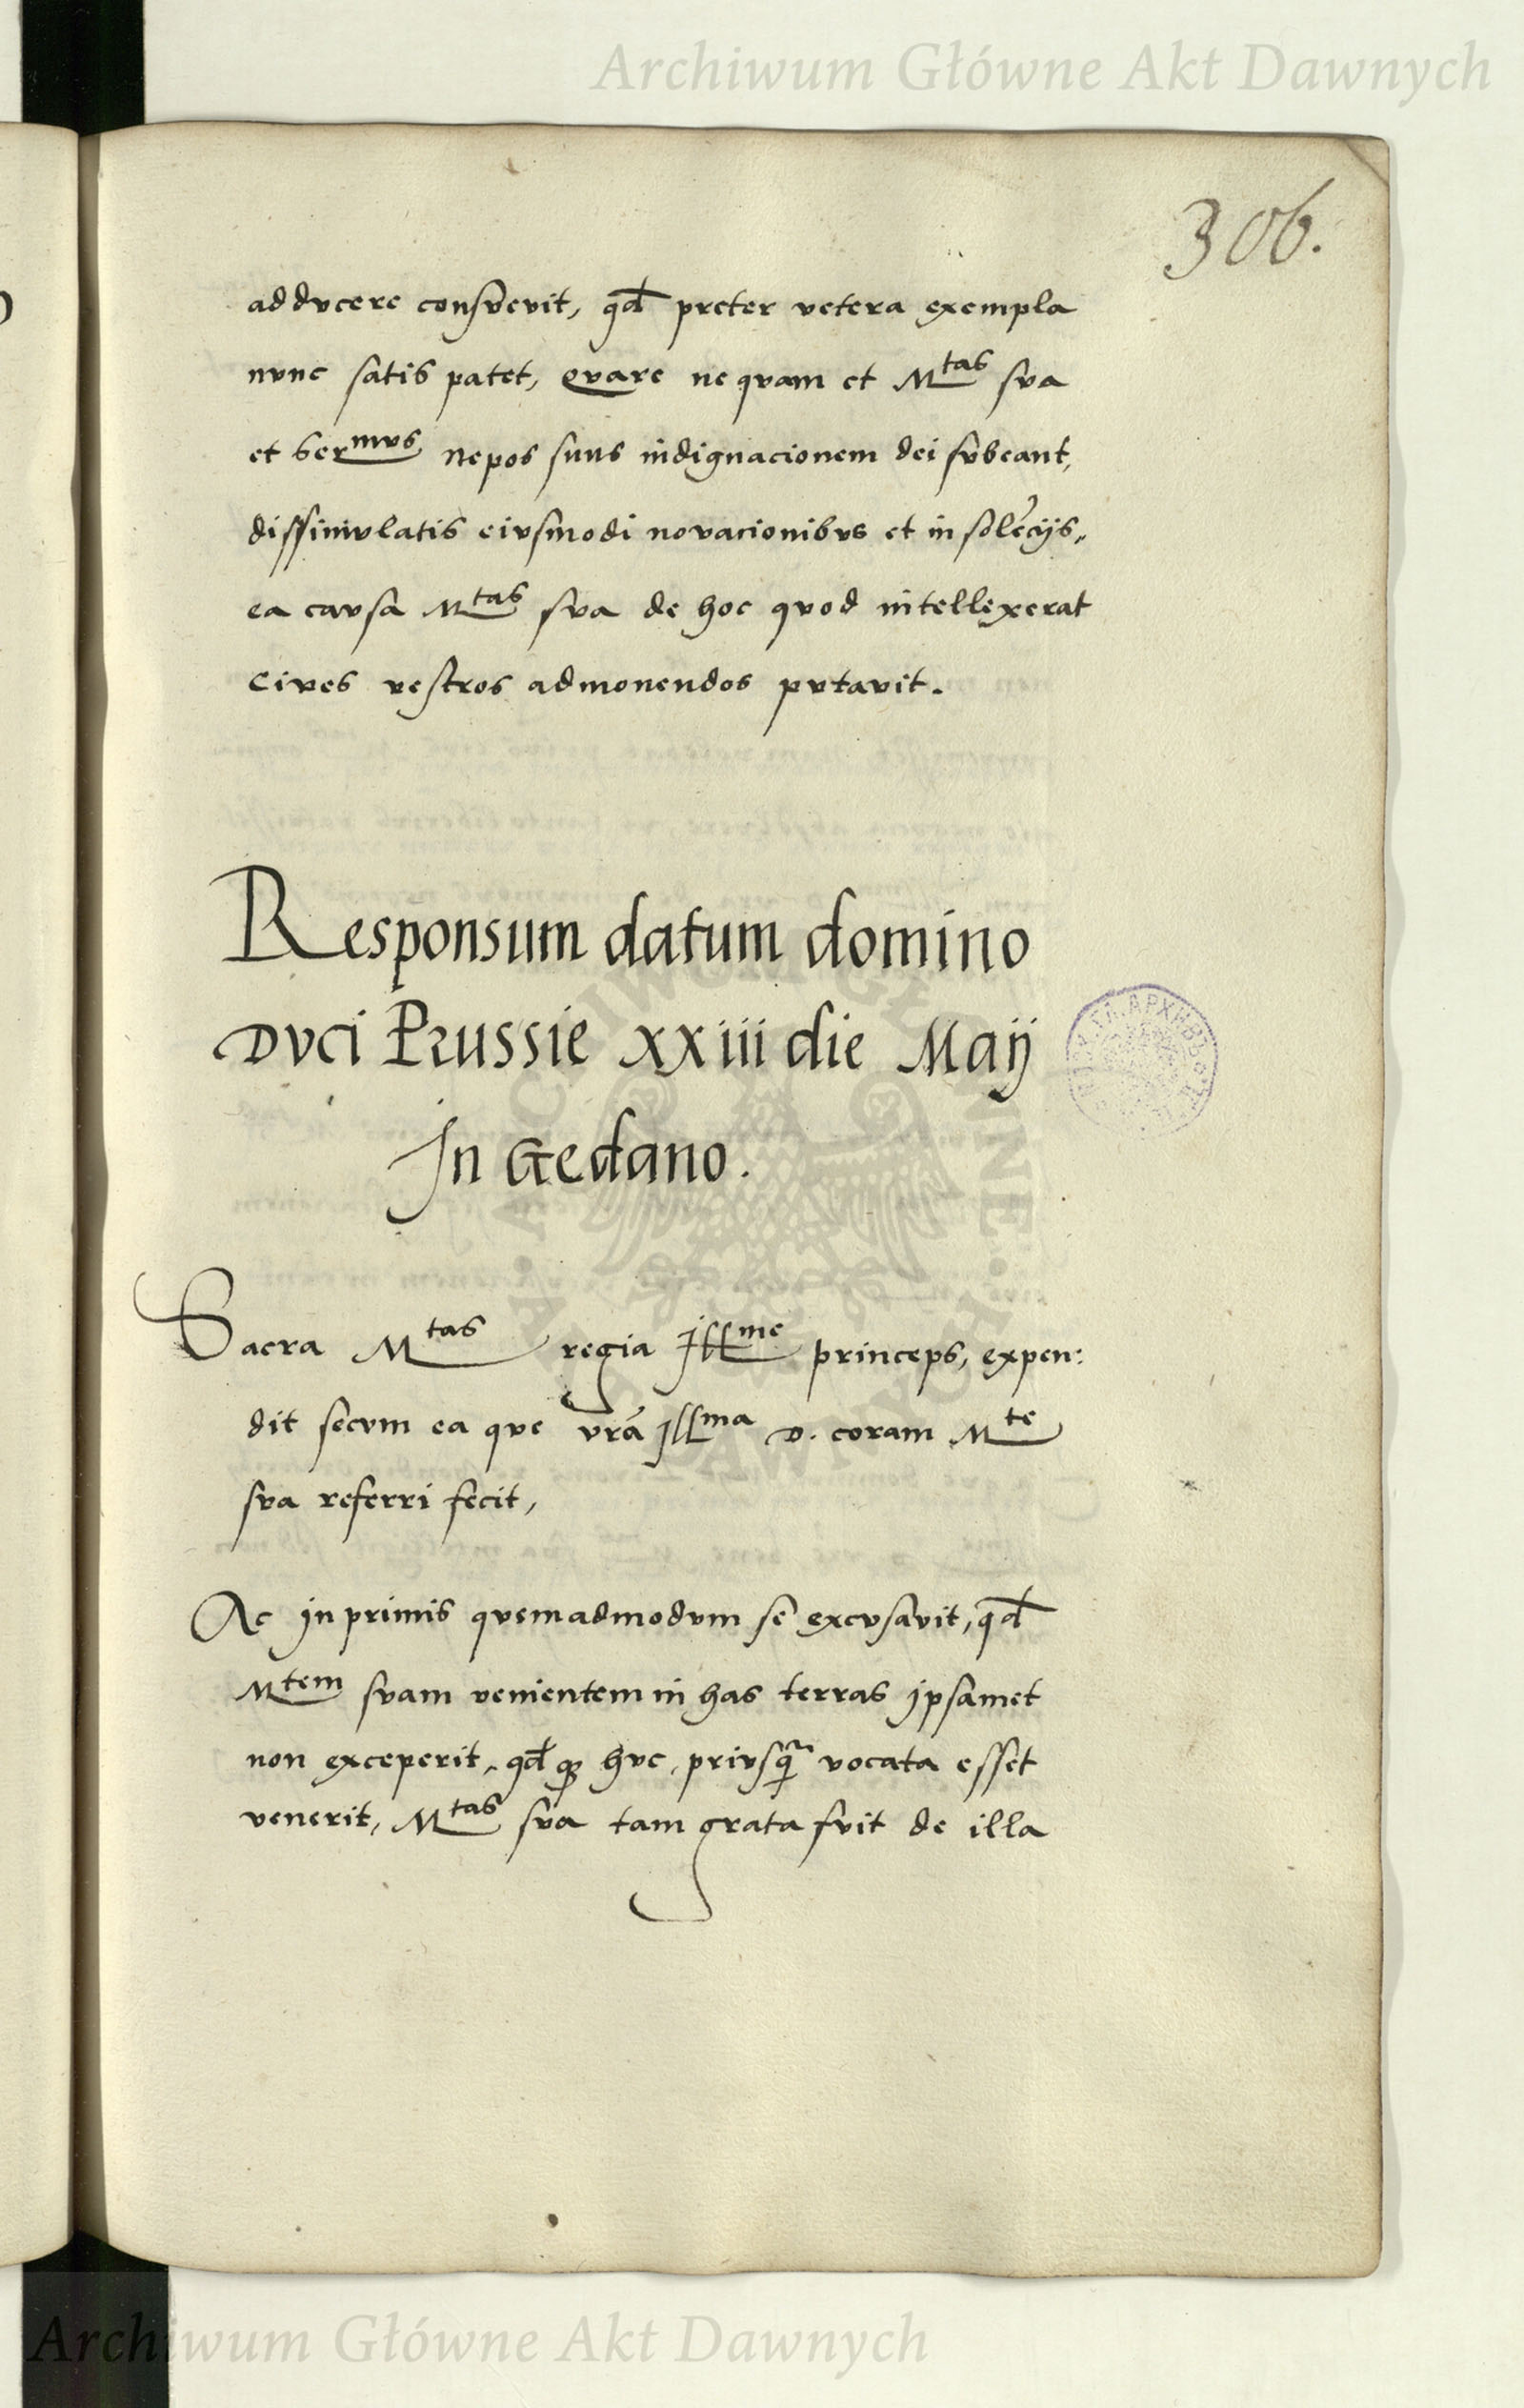 Archiwum Główne Akt Dawnych
306.
adducere consuevit, qd preter vetera exempla
nunc satis patet, quare ne quam et Mtas sua
et Sermus Nepos suus indignacionem dei subeant,
dissimulatis eiusmodi novacionibus et insolēcijs,
ea causa Mtas sua de hoc quod intellexerat
Cives vestros admonendos putavit.
Responsum datum domino
Duci Prussie xxiii die Maij
In Gedano.
Sacra Mtas regia Illme princeps, expen:
dit secum ea que vrā Illma D. coram Mte
sua referri fecit,
Ac in primis quemadmodum se excusavit, qd
Mtem suam venientem in has terras ipsamet
non exceperit, qd huc, priusq̃ vocata esset
venerit, Mtas sua tam grata fuit de illa
Archiwum Główne Akt Dawnych